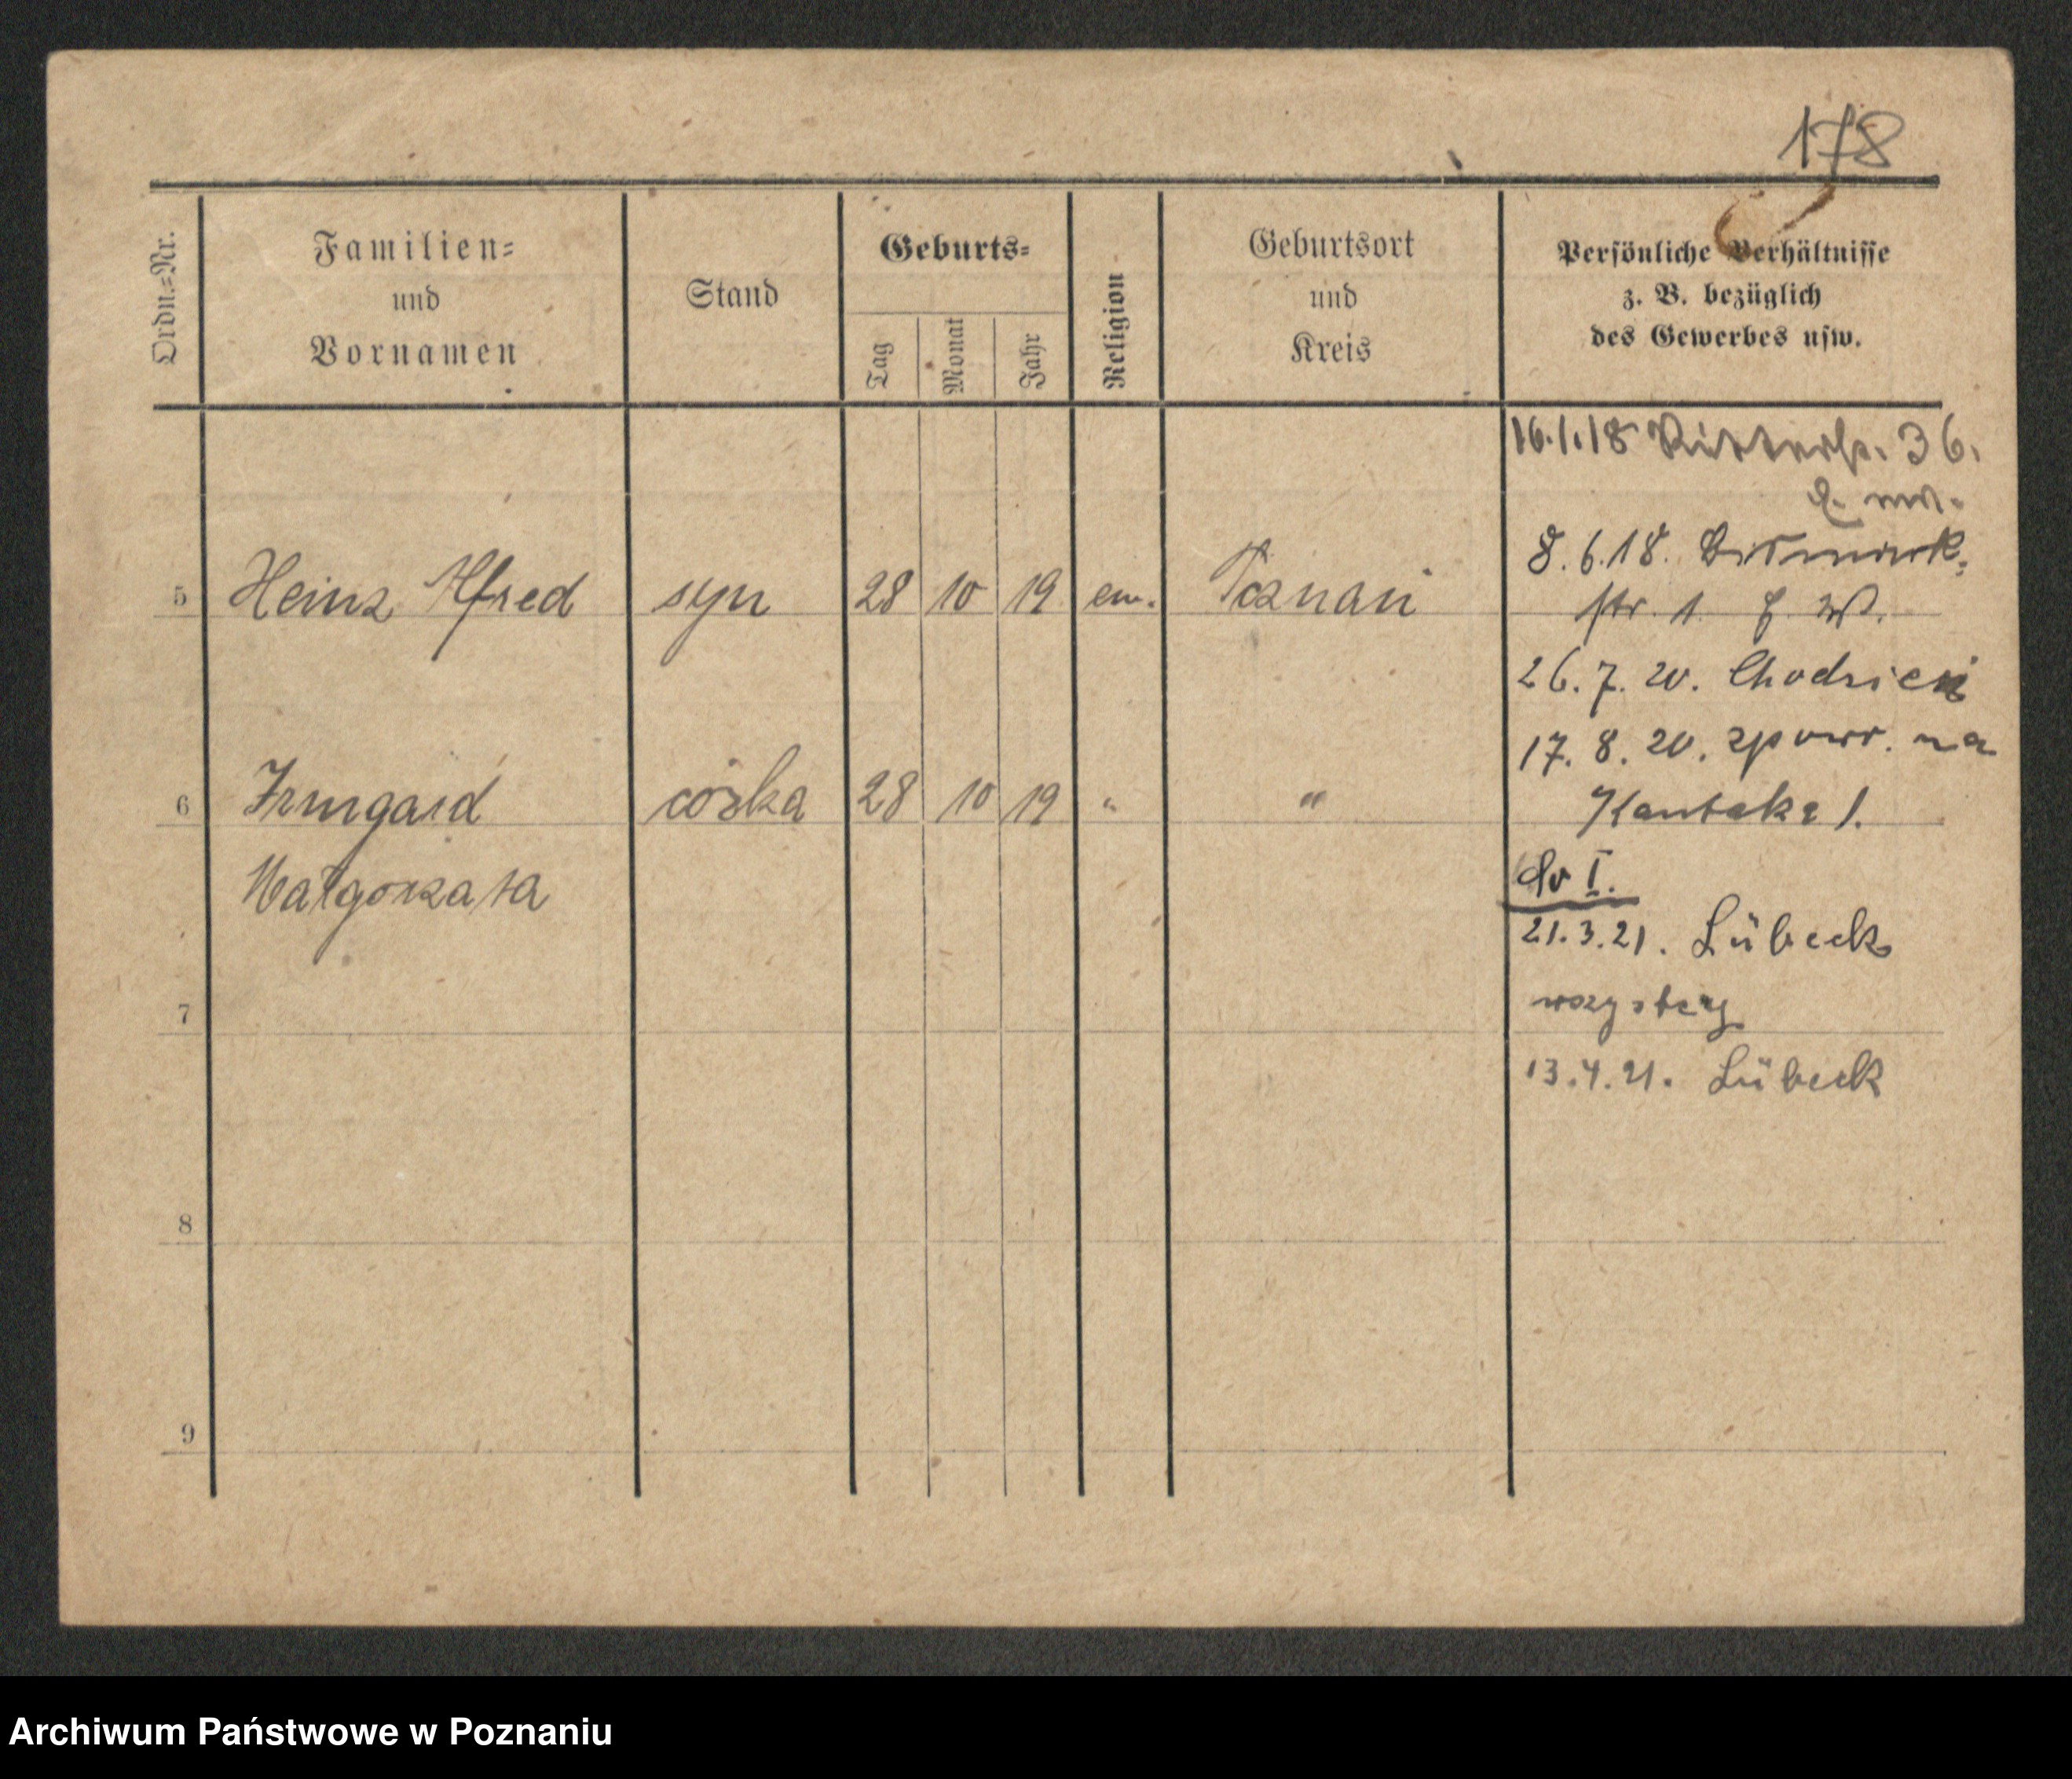 178
Ordn.=Nr.
Familien=
und
Vornamen
Stand
Geburts=
Tag
Monat
Jahr
Religion
Geburtsort
und
Kreis
Persönliche Verhältnisse
z. B. bezüglich
des Gewerbes usw.
16.1.18 Ritterstr. 36.
8.6.18. Bismarck=
5 Heinz Alfred syn 28 10 19 ew. Poznań
str. 1.
26.7.20. Chodzież
17.8.20. zpowr. na
6 Irmgard córka 28 10 19 " "
Kantaka 1.
Małgorzata
do I.
21.3.21. Lübeck
7
wszyscy
13.4.21. Lübeck
8
9
Archiwum Państwowe w Poznaniu